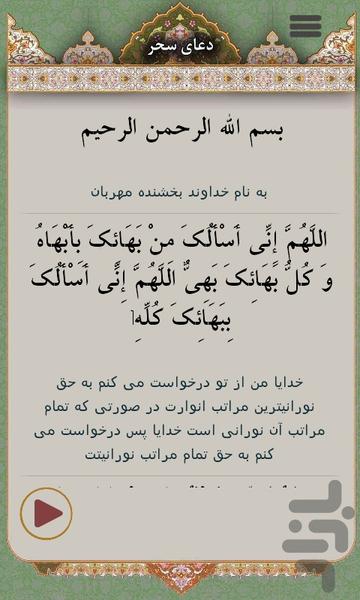 دعای سحر
بسم الله الرحمن الرحیم
به نام خداوند بخشنده مهربان
اللَّهُمَّ إِنِّی أَسْأَلُکَ مِنْ بَهَائِکَ بِأَبْهَاهُ
وَ کُلُّ بَهَائِکَ بَهِیٌّ اَللَّهُمَّ إِنِّی أَسْأَلُکَ
بِبَهَائِکَ کُلِّهِ
خدایا من از تو درخواست می کنم به حق
نورانیترین مراتب انوارت در صورتی که تمام
مراتب آن نورانی است خدایا پس درخواست می
کنم به حق تمام مراتب نورانیتت
بازار